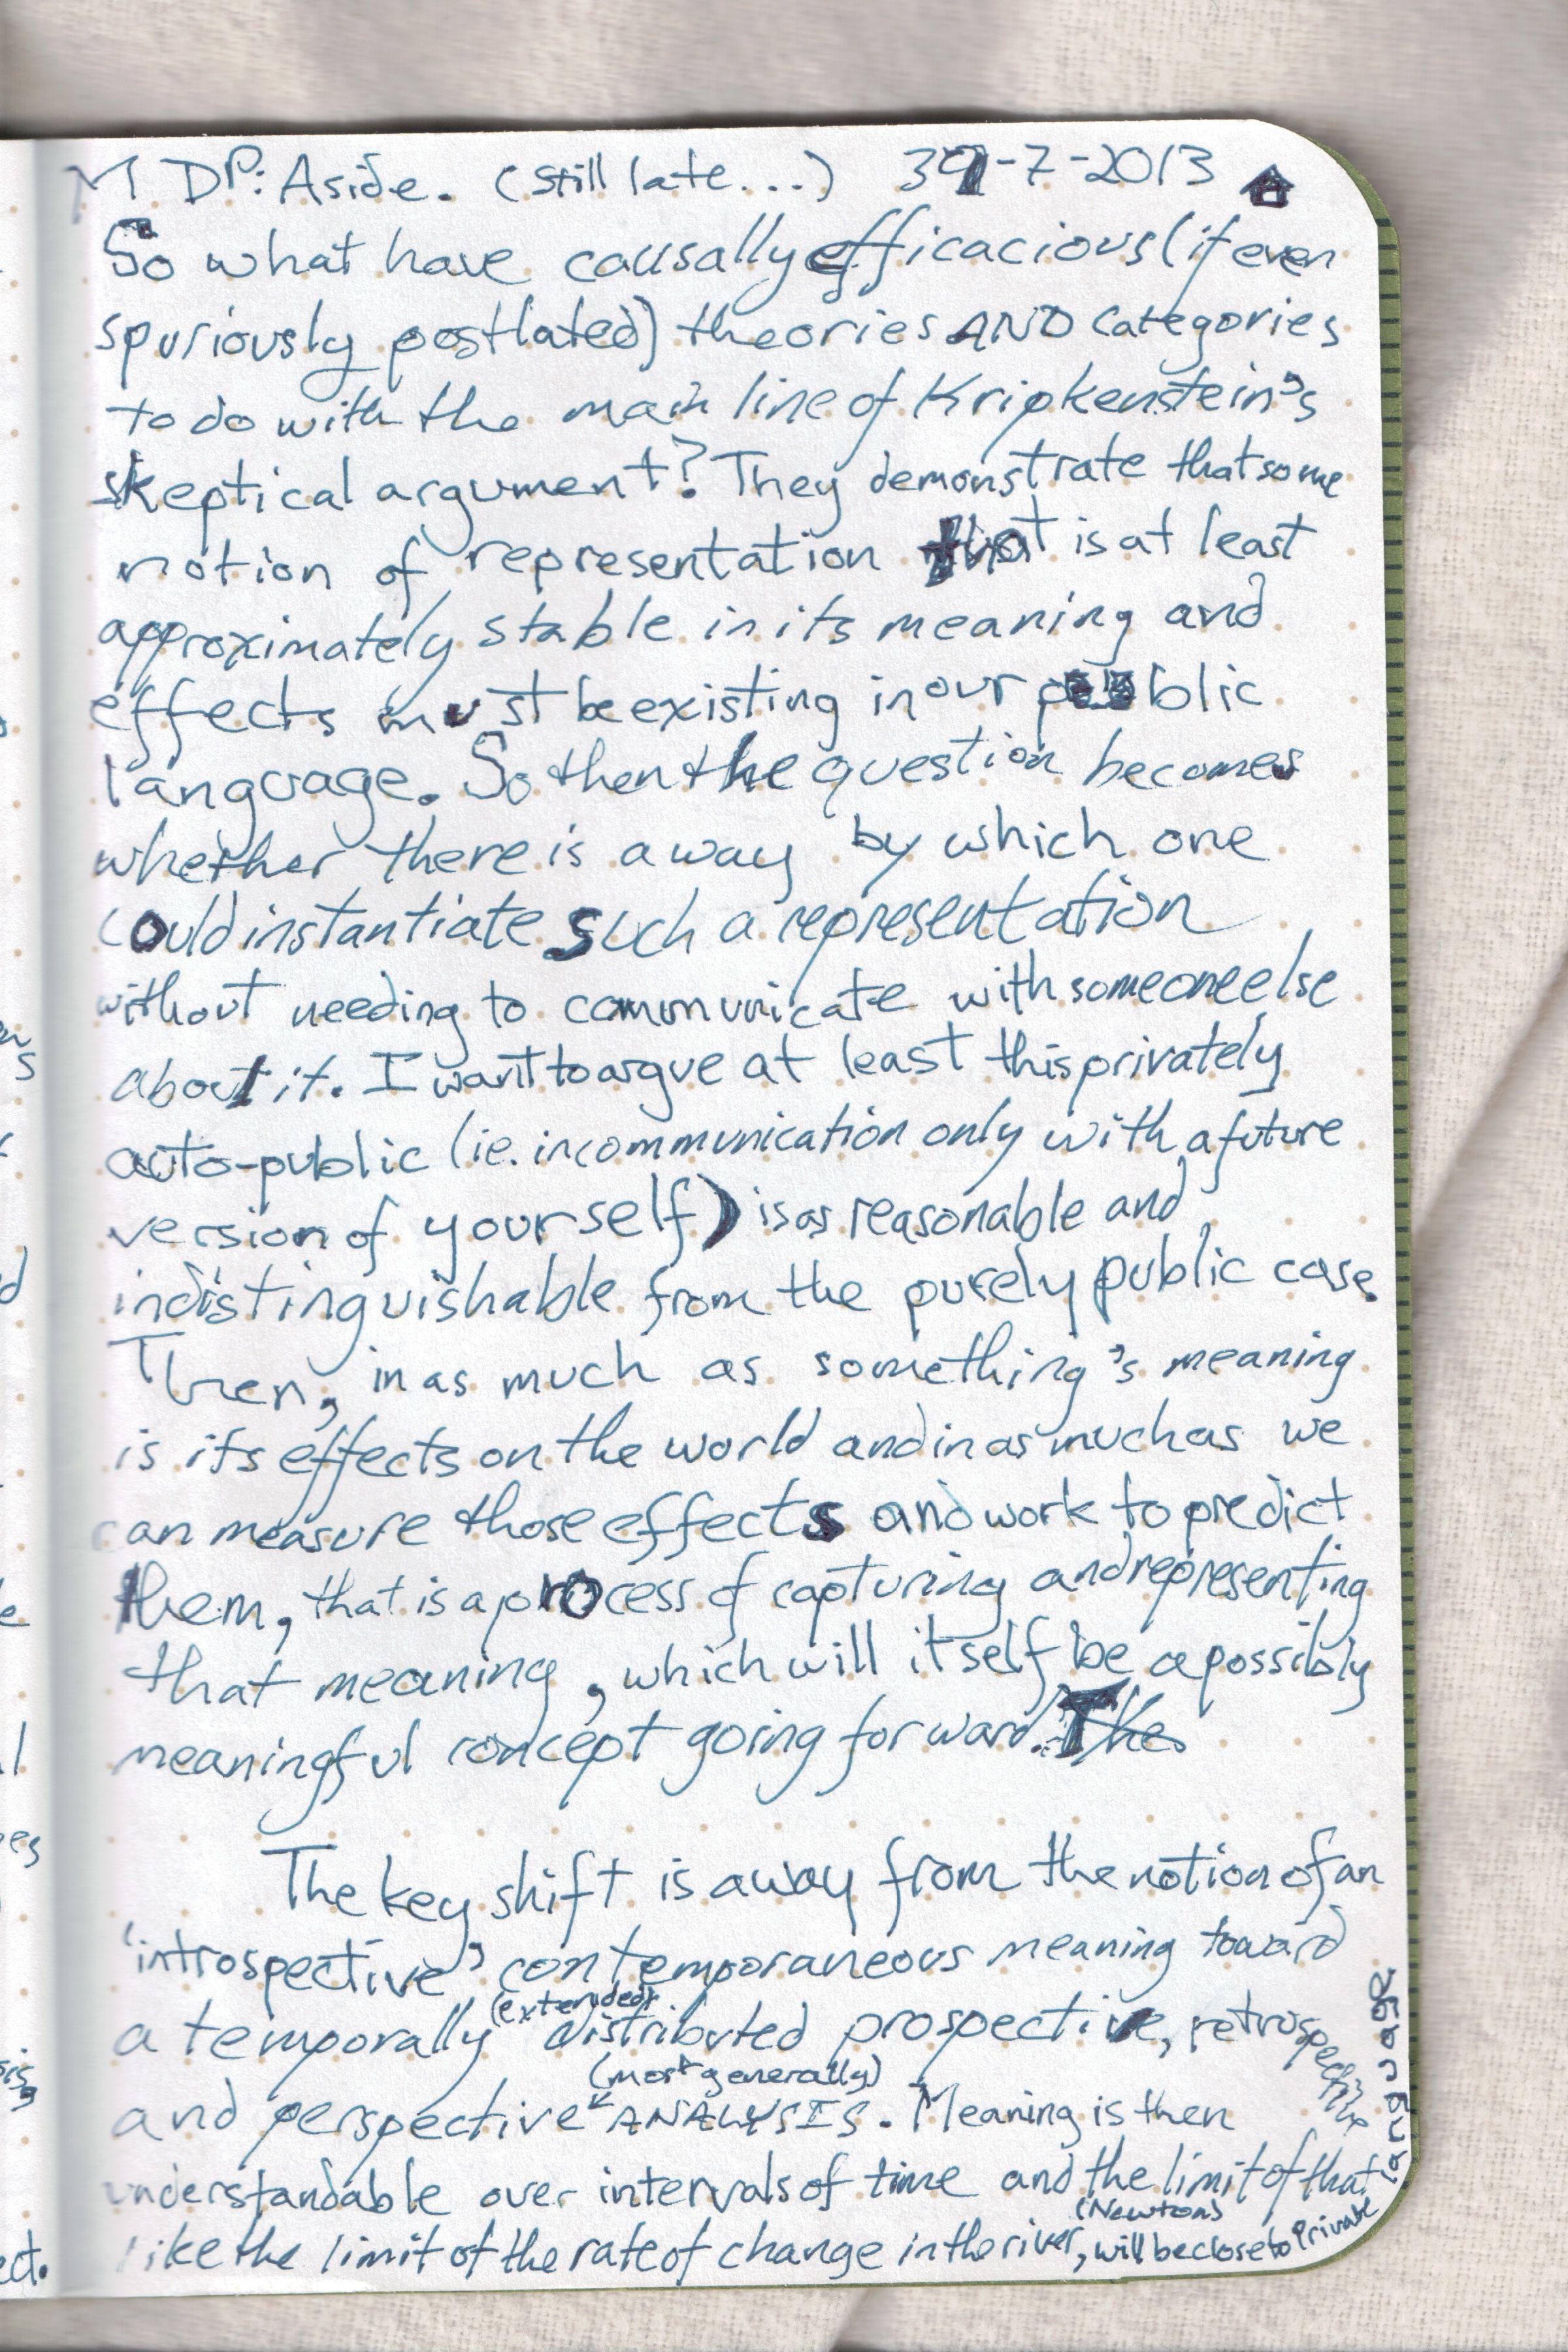 MDP: Aside. (still late...) 31-7-2013
So what have causally efficacious (if even
spuriously postlated) theories AND categories
to do with the main line of Kripkenstein's
skeptical argument? They demonstrate that some
notion of representation that is at least
approximately stable in its meaning and
effects must be existing in our public
language. So then the question becomes
whether there is a way by which one
could instantiate such a representation
without needing to communicate with someone else
about it. I want to argue at least this privately
auto-public (ie. in communication only with a future
version of yourself) is as reasonable and
indistinguishable from the purely public case.
Then, in as much as something's meaning
is its effects on the world and in as much as we
can measure those effects and work to predict
them, that is a process of capturing and representing
that meaning, which will itself be a possibly
meaningful concept going forward. The
The key shift is away from the notion of an
'introspective' contemporaneous meaning toward
a temporally (extended) distributed prospective, retrospective
and perspective (most generally) ANALYSIS. Meaning is then
understandable over intervals of time and the limit of that
like the limit of the rate of change in the river, (Newton) will be close to private
language